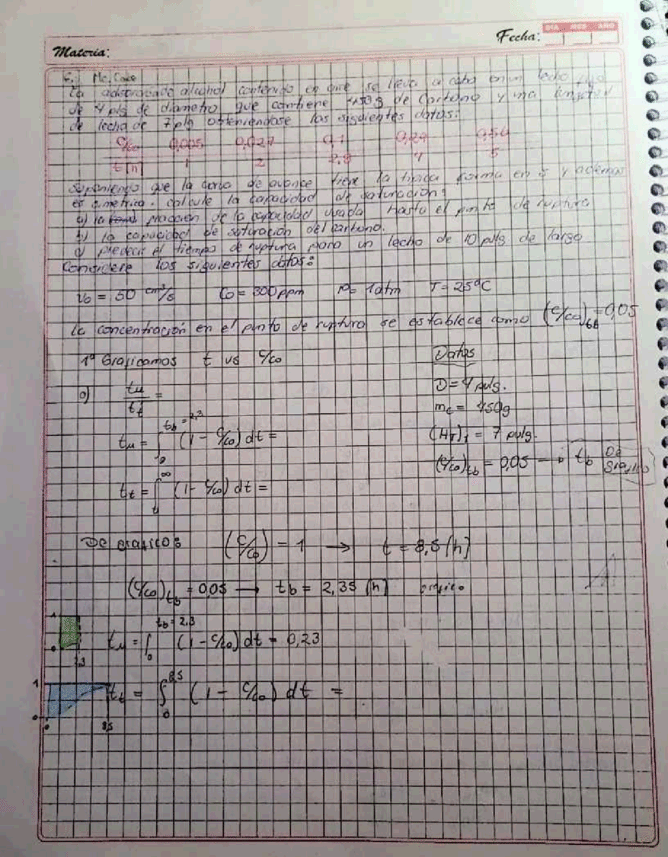 Fecha: DIA MES AÑO
Materia:
6. Mc. Cabe
La adsorción de alcohol contenido en que se lleva a cabo en un lecho
de 4 plg de diámetro que contiene 450g de Carbono y una longitud
de lecho de 7 plg obteniendose los siguientes datos:
C/Co 0,005 0,027 0,1 0,29 0,56
t[h] 1 2 2,8 4 5
Suponiendo que la curva de avance tiene la tipica forma en S y además
es simetrica. calcule la capacidad de saturación:
a) la fracción de la capacidad usada hasta el punto de ruptura
b) la capacidad de saturación del carbono.
c) predecir el tiempo de ruptura para un lecho de 10 pulg de largo
Considere los siguientes datos:
vo = 50 cm³/s Co = 300 ppm P = 1 atm T = 25°C
La concentración en el punto de ruptura se establece como (C/Co)tb = 0,05
1º Graficamos t vs C/Co
Datos
a) tu/tt =
D = 4 pulg.
mc = 450g
tu = ∫0 tb=2,3 (1 - C/Co) dt =
(HT)1 = 7 pulg.
(C/Co)tb = 0,05 → tb De Grafico
tt = ∫0 ∞ (1 - C/Co) dt =
De graficos (C/Co) = 1 → t = 8,5 [h]
(C/Co)tb = 0,05 → tb = 2,35 [h] grafico
tu = ∫0 tb=2,3 (1 - C/Co) dt = 0,23
1 0 2,3
tt = ∫0 8,5 (1 - C/Co) dt =
1 0 0 8,5